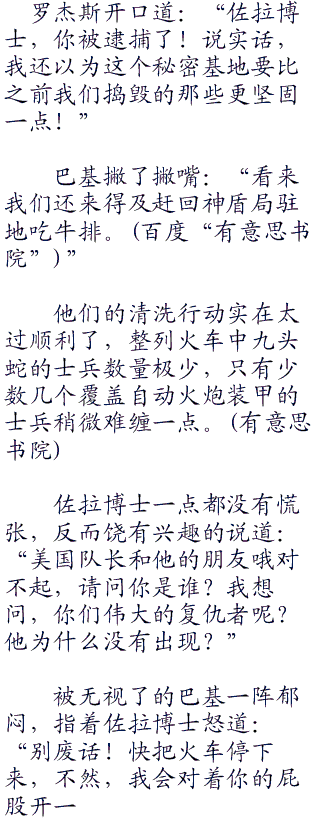 罗杰斯开口道：“佐拉博
士，你被逮捕了！说实话，
我还以为这个秘密基地要比
之前我们捣毁的那些更坚固
一点！”
巴基撇了撇嘴：“看来
我们还来得及赶回神盾局驻
地吃牛排。(百度“有意思书
院”)”
他们的清洗行动实在太
过顺利了，整列火车中九头
蛇的士兵数量极少，只有少
数几个覆盖自动火炮装甲的
士兵稍微难缠一点。(有意思
书院)
佐拉博士一点都没有慌
张，反而饶有兴趣的说道：
“美国队长和他的朋友哦对
不起，请问你是谁？我想
问，你们伟大的复仇者呢？
他为什么没有出现？”
被无视了的巴基一阵郁
闷，指着佐拉博士怒道：
“别废话！快把火车停下
来，不然，我会对着你的屁
股开一